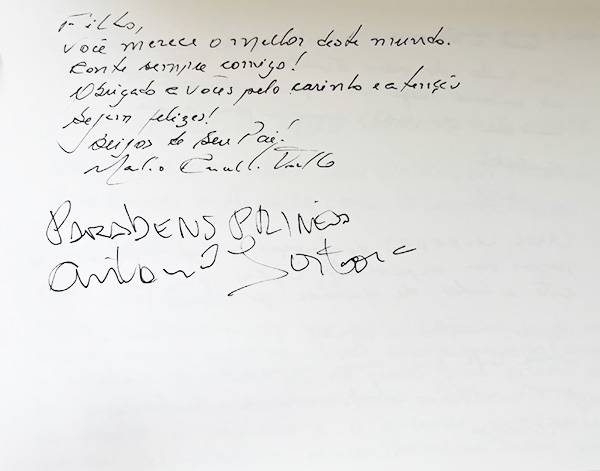 Filho,
você merece o melhor deste mundo.
Conte sempre comigo!
Obrigado a vocês pelo carinho e atenção
Sejam felizes!
Beijos do seu Pai!
PARABENS
Antonio